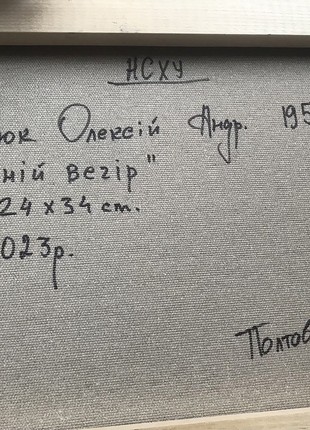 НСХУ
юк Олексій Андр. 195
ній вечір"
24 х 34 cm.
023р.
Полтав